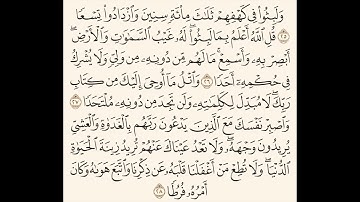 وَلَبِثُوا۟ فِى كَهْفِهِمْ ثَلَٰثَ مِا۟ئَةٍ سِنِينَ وَٱزْدَادُوا۟ تِسْعًا
﴿٢٥﴾ قُلِ ٱللَّهُ أَعْلَمُ بِمَا لَبِثُوا۟ لَهُۥ غَيْبُ ٱلسَّمَٰوَٰتِ وَٱلْأَرْضِ
أَبْصِرْ بِهِۦ وَأَسْمِعْ مَا لَهُم مِّن دُونِهِۦ مِن وَلِىٍّ وَلَا يُشْرِكُ
فِى حُكْمِهِۦٓ أَحَدًا ﴿٢٦﴾ وَٱتْلُ مَآ أُوحِىَ إِلَيْكَ مِن كِتَابِ
رَبِّكَ لَا مُبَدِّلَ لِكَلِمَٰتِهِۦ وَلَن تَجِدَ مِن دُونِهِۦ مُلْتَحَدًا ﴿٢٧﴾
وَٱصْبِرْ نَفْسَكَ مَعَ ٱلَّذِينَ يَدْعُونَ رَبَّهُم بِٱلْغَدَوٰةِ وَٱلْعَشِىِّ
يُرِيدُونَ وَجْهَهُۥ وَلَا تَعْدُ عَيْنَاكَ عَنْهُمْ تُرِيدُ زِينَةَ ٱلْحَيَوٰةِ
ٱلدُّنْيَا وَلَا تُطِعْ مَنْ أَغْفَلْنَا قَلْبَهُۥ عَن ذِكْرِنَا وَٱتَّبَعَ هَوَىٰهُ وَكَانَ
أَمْرُهُۥ فُرُطًا ﴿٢٨﴾